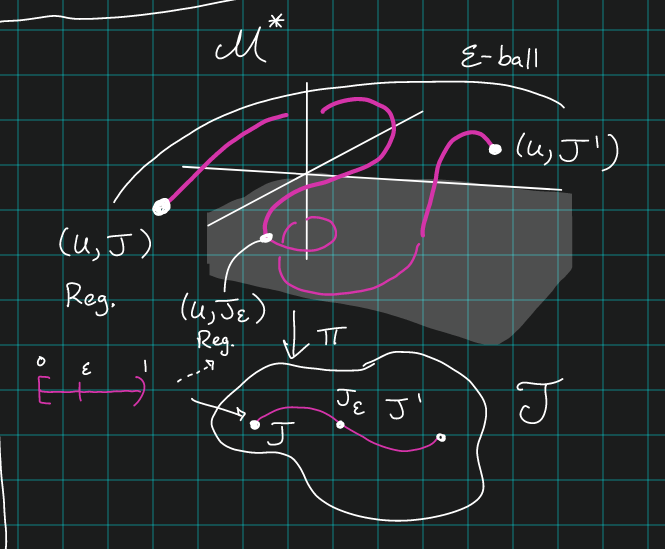 𝓜*
ε-ball
(u, J')
(u, J)
Reg.
(u, J_ε)
Reg.
π
0 ε 1
J_ε J'
J
𝒥